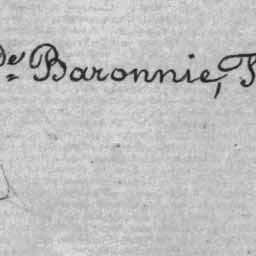 de Baronnie,